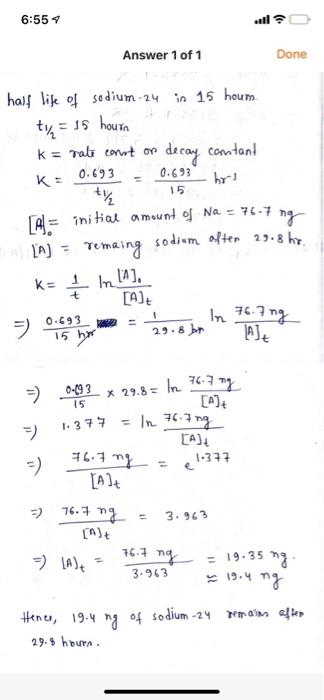 6:55
Answer 1 of 1
Done
half life of sodium-24 in 15 hours.
t½ = 15 hours
K = rate const or decay constant
K = 0.693/t½ = 0.693/15 hr-1
[A]o = initial amount of Na = 76.7 ng
[A] = remaing sodium after 29.8 hr.
K = 1/t ln [A]o/[A]t
=) 0.693/15 hr = 1/29.8 hr ln 76.7 ng/[A]t
=) 0.693/15 x 29.8 = ln 76.7 ng/[A]t
=) 1.377 = ln 76.7 ng/[A]t
=) 76.7 ng/[A]t = e^1.377
=) 76.7 ng/[A]t = 3.963
=) [A]t = 76.7 ng/3.963 = 19.35 ng.
≈ 19.4 ng
Hence, 19.4 ng of sodium-24 remains after
29.8 hours.